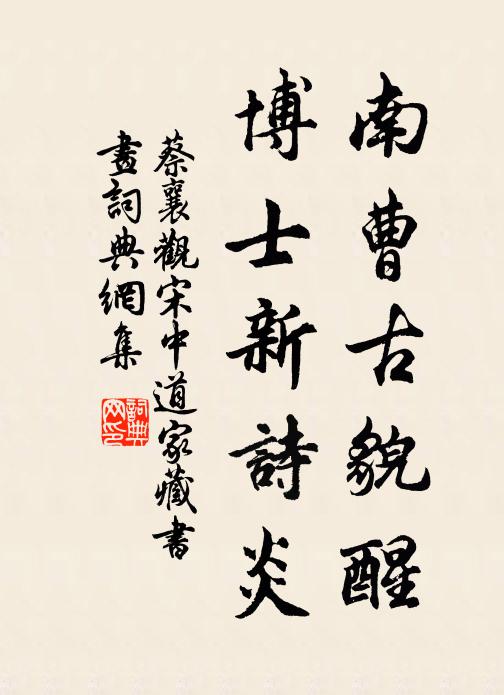 南曹古貌醒
博士新詩炎
蔡襄觀宋中道家藏書
畫詞典網集
詞典
網印